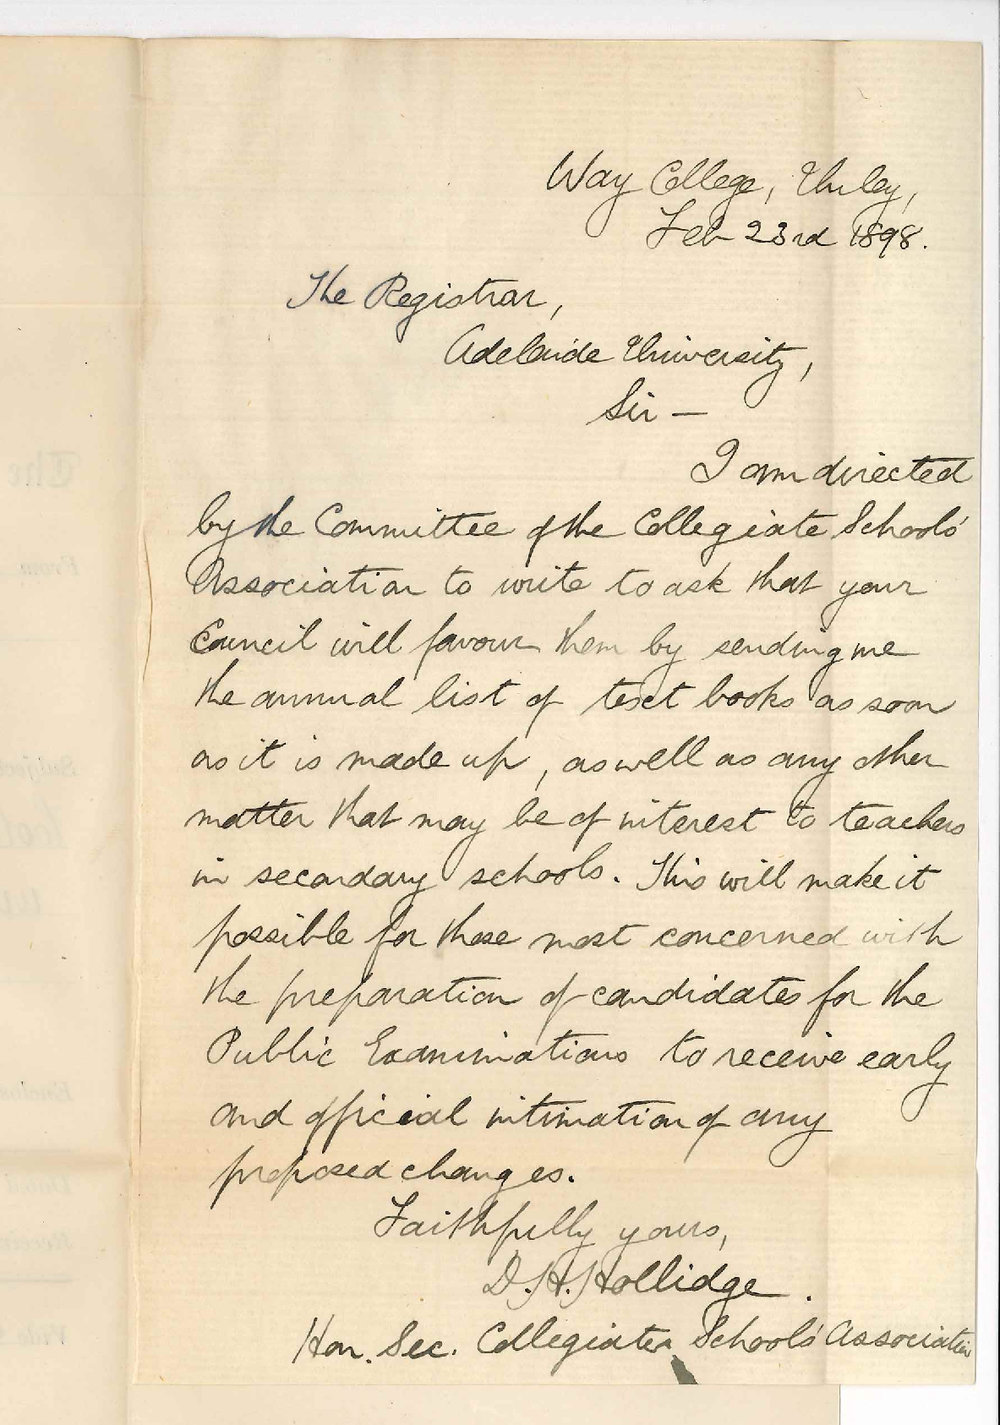 Way College, Unley,
Feb 23rd 1898.
The Registrar,
Adelaide University,
Sir —
I am directed
by the Committee of the Collegiate Schools'
Association to write to ask that your
Council will favour them by sending me
the annual list of text books as soon
as it is made up, as well as any other
matter that may be of interest to teachers
in secondary schools. This will make it
possible for those most concerned with
the preparation of candidates for the
Public Examinations to receive early
and official intimation of any
proposed changes.
Faithfully yours,
D. H. Hollidge.
Hon. Sec. Collegiate Schools' Association
The
From
Subject